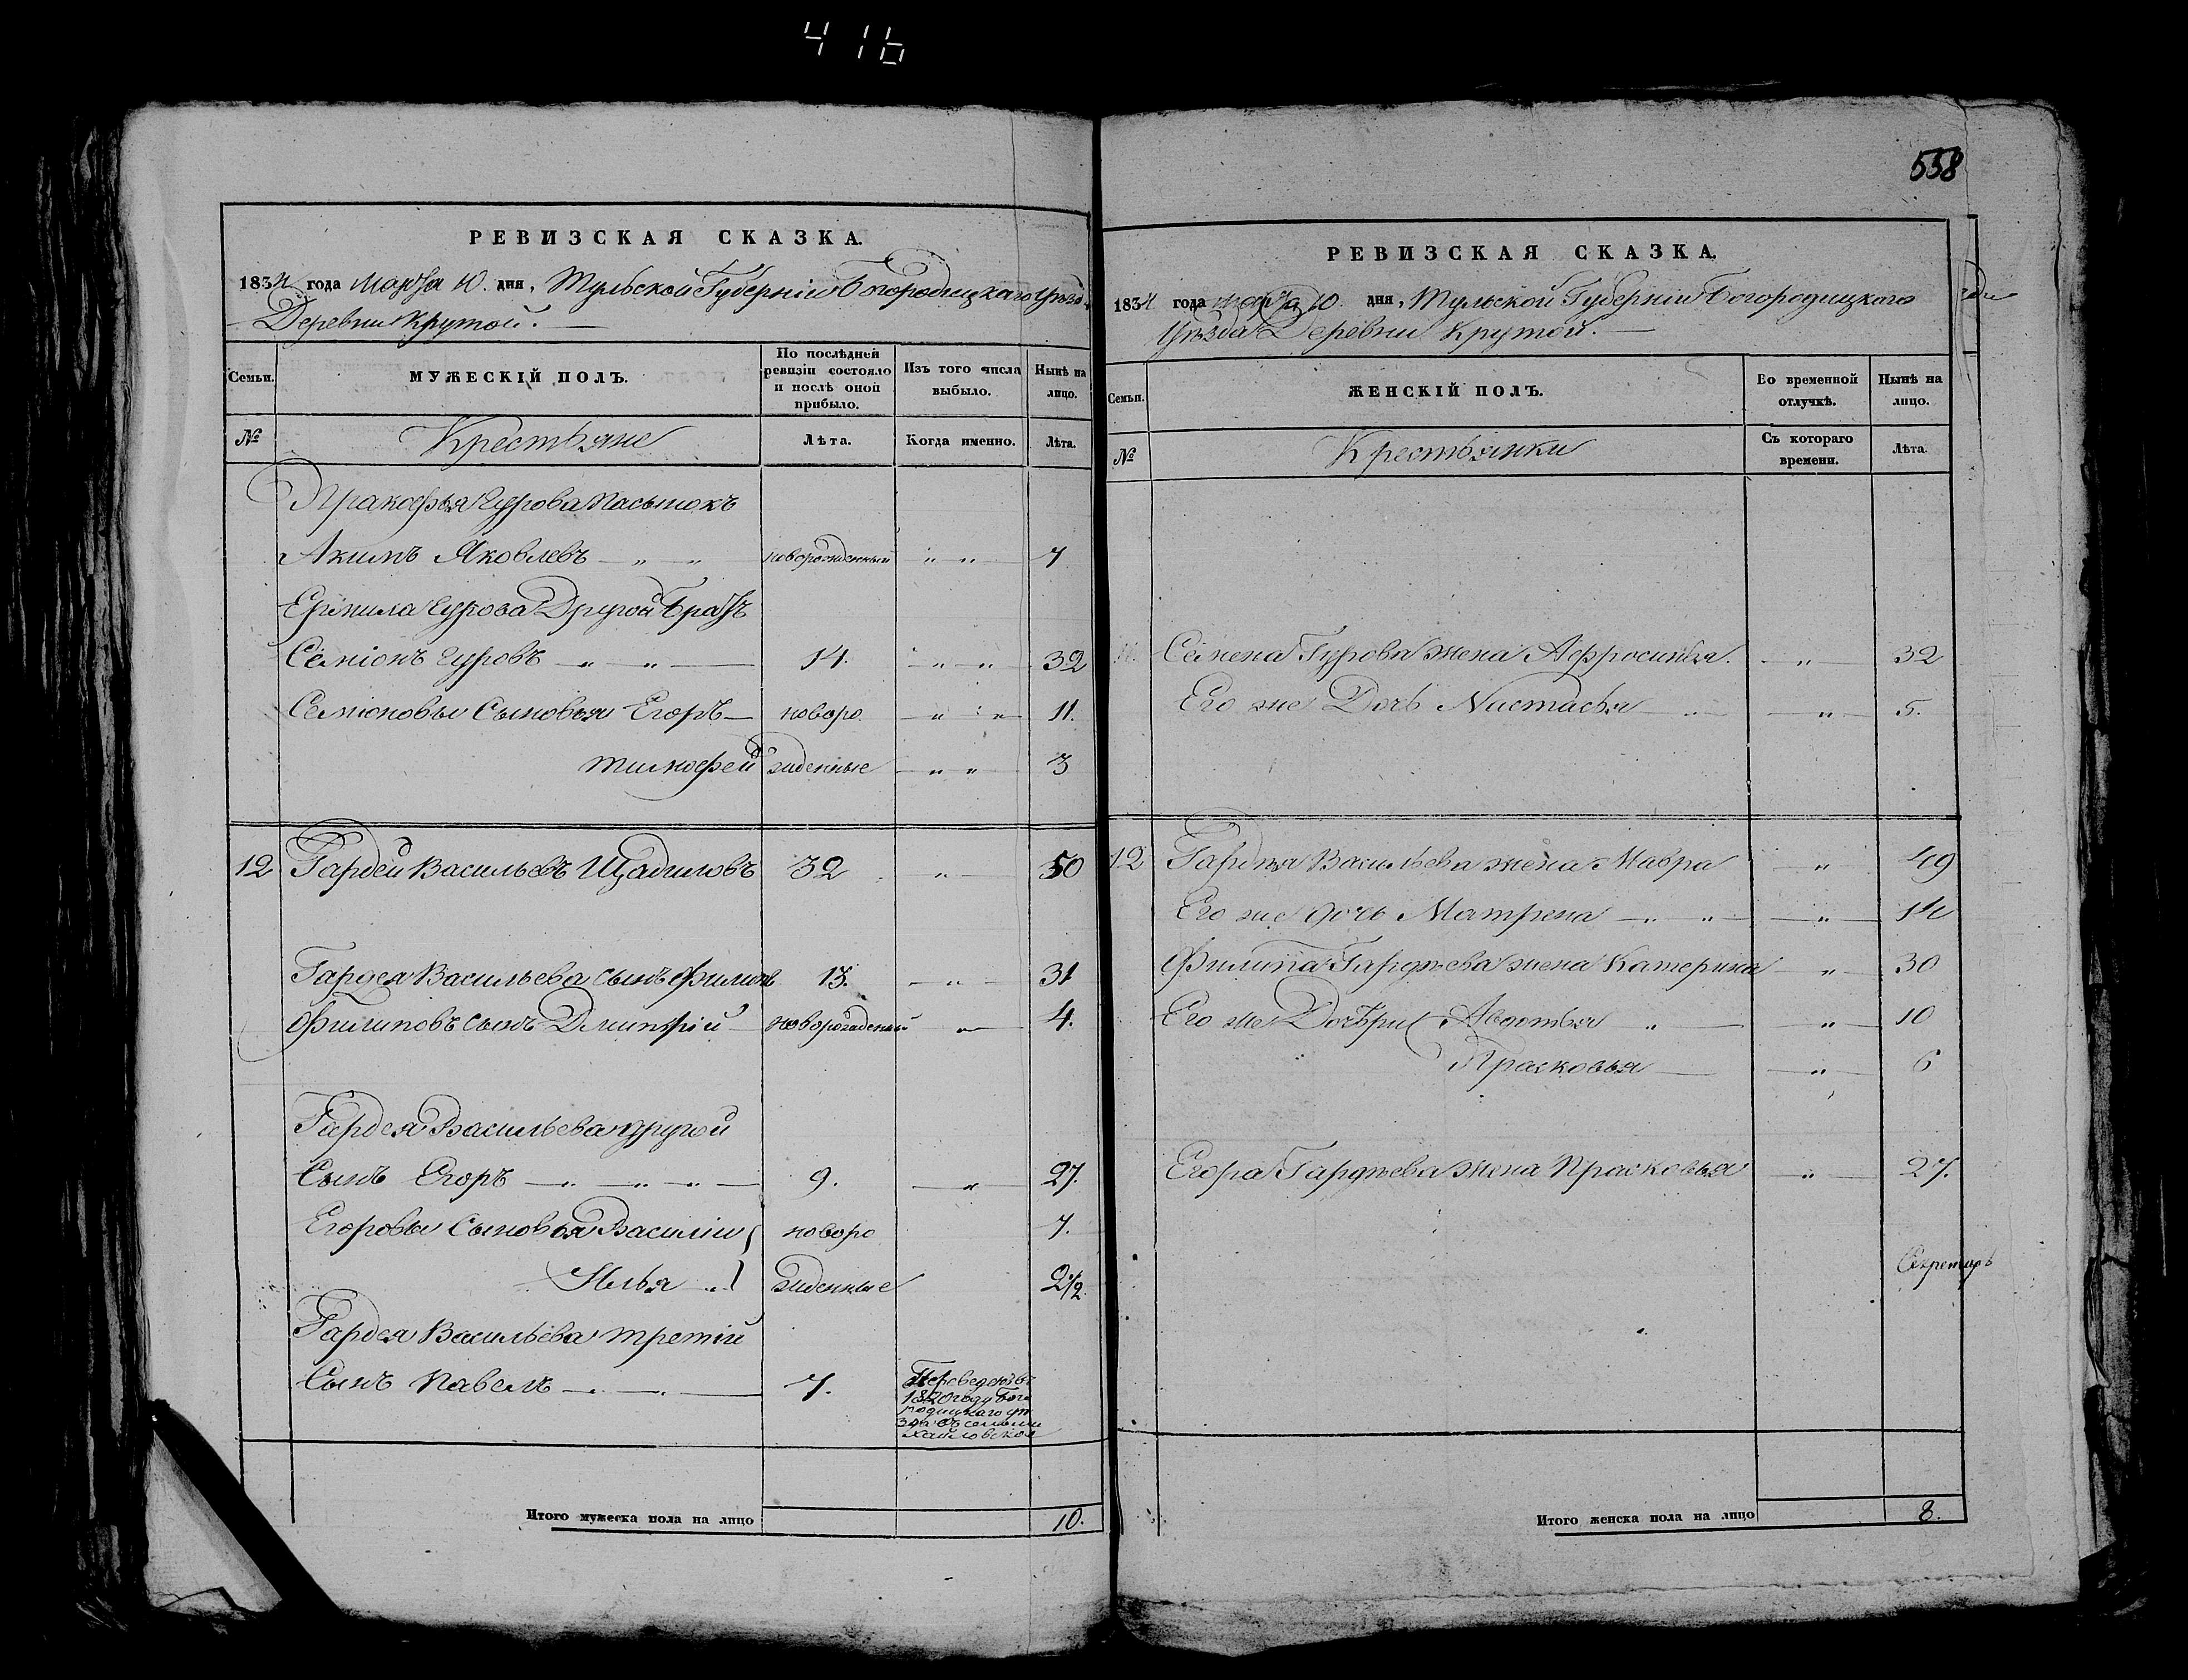 416
558
РЕВИЗСКАЯ СКАЗКА.
1834 года Марта 10. дня, Тульской Губерніи Богородицкаго Уѣзда
Деревни Крутой.
Семьи. МУЖЕСКІЙ ПОЛЪ. По послѣдней ревизіи состояло и послѣ оной прибыло. Изъ того числа выбыло. Нынѣ на лицо.
№ Крестьяне Лѣта. Когда именно. Лѣта.
Пракофья Гурова пасынокъ
Акимъ Яковлевъ новорожденный 7
Ермила Гурова Другой Братъ
Семіонъ Гуровъ 14. 32
Семіоновы Сыновья Егоръ новоро 11.
тимофей жденные 3
12 Гардей Васильевъ Щадиловъ 32 50
Гардея Васильева сынъ Филипъ 13. 31
Филиповъ сынъ Дмитрій новорожденный 4.
Гардея Васильева другой
Сынъ Егоръ 9. 27.
Егоровы Сыновья Василій новоро 7.
Илья жденные 2 1/2
Гардея Васильева третій
Сынъ Павелъ 7. Переведенъ въ
1820 году Бого
родицкаго уѣ
зда въ село
Итого мужеска пола на лицо 10.
РЕВИЗСКАЯ СКАЗКА.
1834 года марта 10. дня, Тульской Губерніи Богородицкаго
Уѣзда Деревни Крутой.
Семьи. ЖЕНСКІЙ ПОЛЪ. Во временной отлучкѣ. Нынѣ на лицо.
№ Крестьянки Съ котораго времени. Лѣта.
Семена Гурова жена Афросинья. 32
Его же Дочь Настасья 5.
12 Гардѣя Васильева жена Мавра 49
Его же дочь Матрена 14
Филипа Гардѣева жена Катерина 30
Его же Дочьри Авдотья 10
Прасковья 6
Егора Гардѣева жена Прасковья 27.
Секретарь
Итого женска пола на лицо 8.